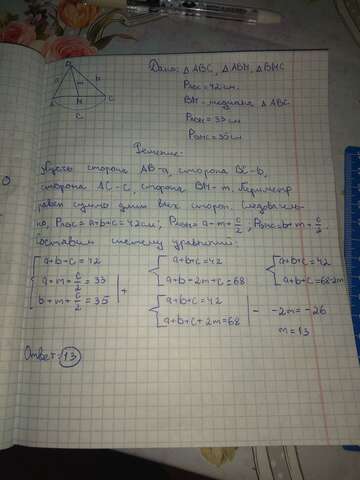 B
a
m
b
A
M
C
c
Дано: △ABC, △ABM, △BMC
P△ABC = 42 см.
BM - медиана △ABC
P△ABM = 33 см
P△BMC = 35 см.
Решение:
Пусть сторона AB-a, сторона BC-b,
сторона AC-c, сторона BM-m. Периметр
равен сумме длин всех сторон. Следователь-
но, P△ABC = a+b+c = 42 см, P△ABM = a+m+c/2, P△BMC = b+m+c/2.
Составим систему уравнений:
{ a+b+c=42
a+m+c/2=33
b+m+c/2=35 | +
{ a+b+c=42
a+b-2m+c=68
{ a+b+c=42
a+b+c=68-2m
{ a+b+c=42
a+b+c+2m=68 | -
-2m=-26
m=13
Ответ: 13